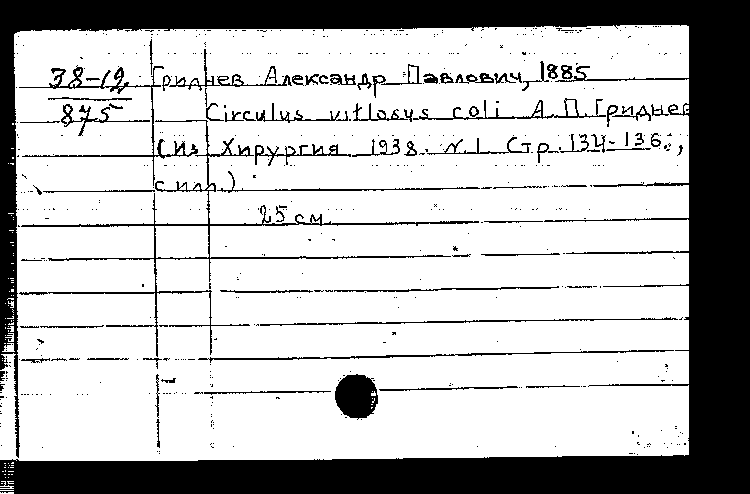 38-12
875
Гриднев Александр Павлович, 1885
Circulus vitlosus coli А.П.Гриднев
(Из Хирургия 1938. N.1 Стр.134-136.,
с илл.)
25 см.